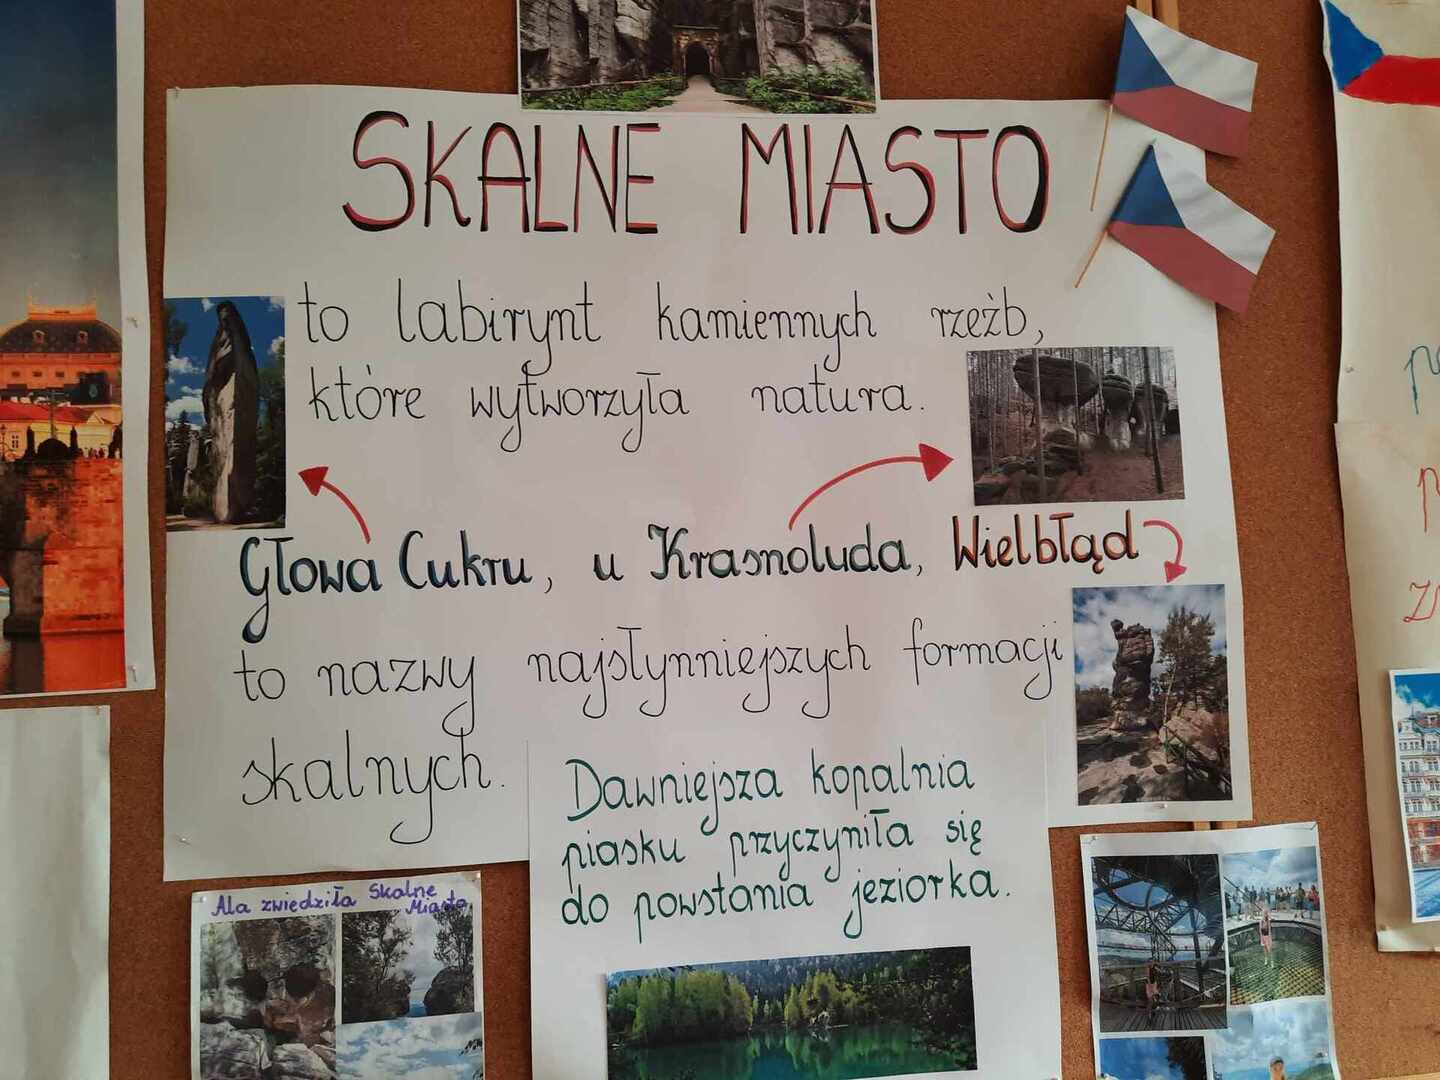 SKALNE MIASTO
to labirynt kamiennych rzeźb,
które wytworzyła natura.
Głowa Cukru, u Krasnoluda, Wielbłąd
to nazwy najsłynniejszych formacji
skalnych.
Dawniejsza kopalnia
piasku przyczyniła się
do powstania jeziorka.
Ala zwiedziła Skalne
Miasto